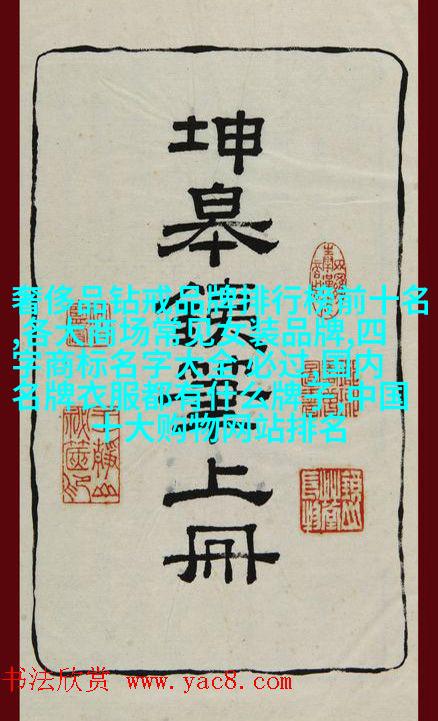 坤皋鐵筆上冊
奢侈品钻戒品牌排行榜前十名
,各大商场常见女装品牌,四
字商标名字大全 必过,国内
名牌衣服都有什么牌子,中国
十大购物网站排名
书法欣赏 www.yac8.com